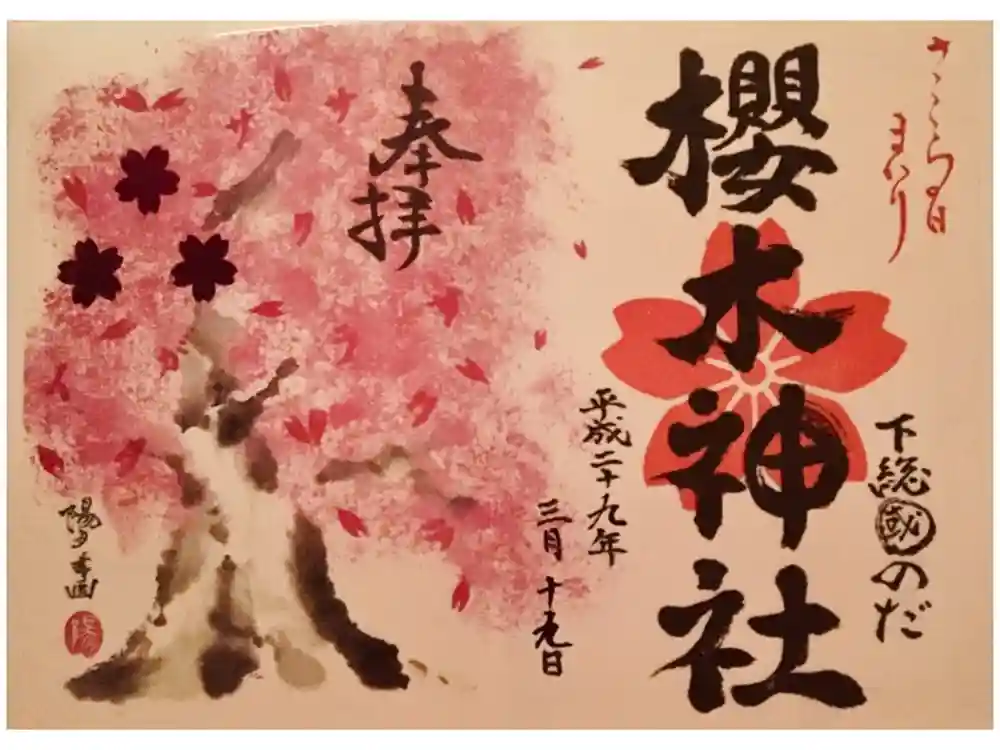 さくらの日
まいり
櫻木神社
下総國のだ
平成二十九年
三月十九日
奉拝
陽